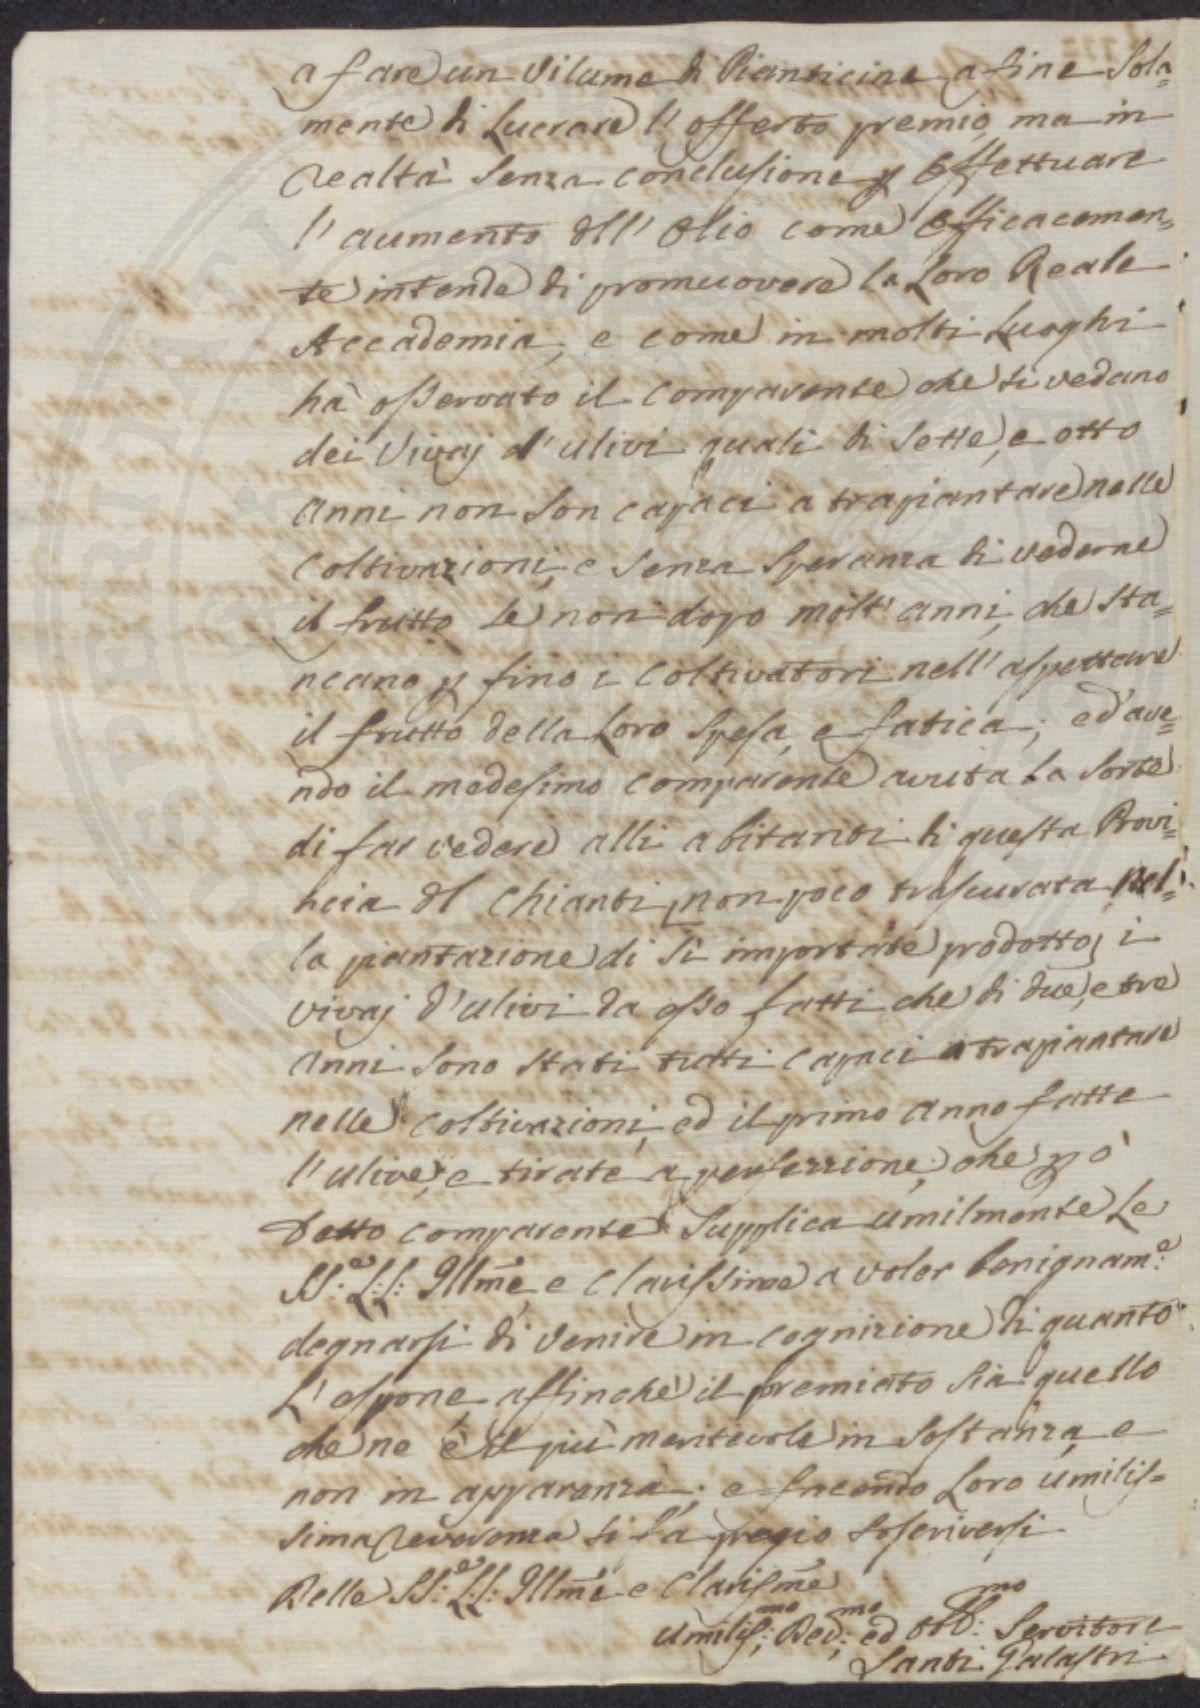 a fare un Vilume di Pianticine a fine Sola=
mente di Lucrare l' offerto premio, ma in
Realtà Senza conclusione p Effettuare
l' aumento dll' Olio come Efficacemen=
te intende di promuovere la Loro Reale
Accademia, e come in molti Luoghi
hà osservato il Comparente che si vedano
dei Vivaj d' ulivi quali di Sette, e otto
Anni non Son capaci a trapiantare nelle
Coltivazioni, e Senza Speranza di vederne
il frutto Se non dopo molt' anni, che sta=
ncano p fino i Coltivatori nell' aspettare
il frutto della Loro Spesa, e fatica; ed' ave=
ndo il medesimo comparente avuta La Sorte
di far vedere alli abitanti di questa Provi=
ncia dl Chianti, non poco trascurata nel=
la piantazione di Sì importāte prodotto, i
vivaj d' ulivi da esso fatti che di due, e tre
Anni Sono Stati tutti capaci a trapiantare
nelle coltivazioni, ed il primo anno fatte
l' ulive, e tirate a perfezzione, che p ò
Detto comparente Supplica umilmente Le
SS.e LL: Illme, e Clarissime a voler benignam.e
degnarsi di venire in cognizione di quanto
L' espone affinchè il premiato sia quello
che ne è il più meritevole in Sostanza, e
non in apparenza; e facendo Loro umilis=
sima Reverenza si fà pregio Soscriversi
Delle SS.e LL: Illme e Clarisme
Umilis:mo Dev:mo ed Obb:mo Servitore
Santi Galastri